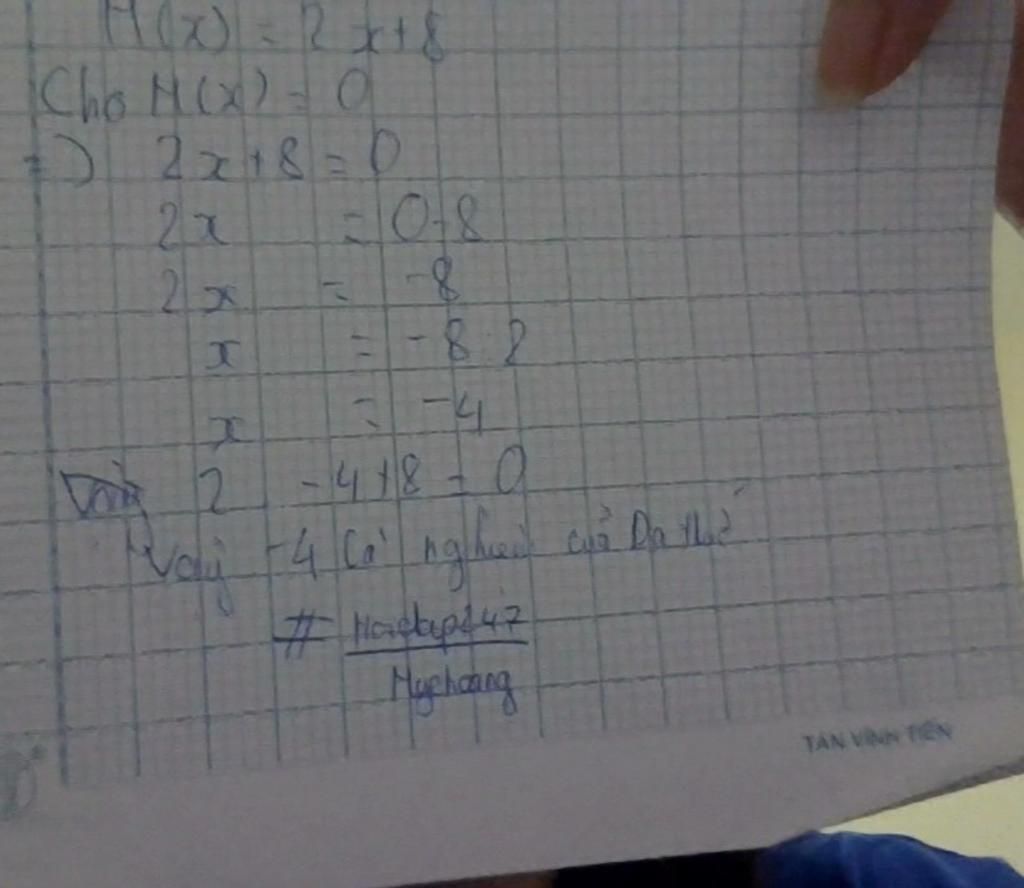 H(x) = 2x+8
Cho H(x) = 0
=) 2x+8 = 0
2x = 0-8
2x = -8
x = -8:2
x = -4
2 -4+8 = 0
Vậy -4 là nghiệm của Đa thức
# Hoidap247
Mychoang
TÂN VĨNH TIẾN